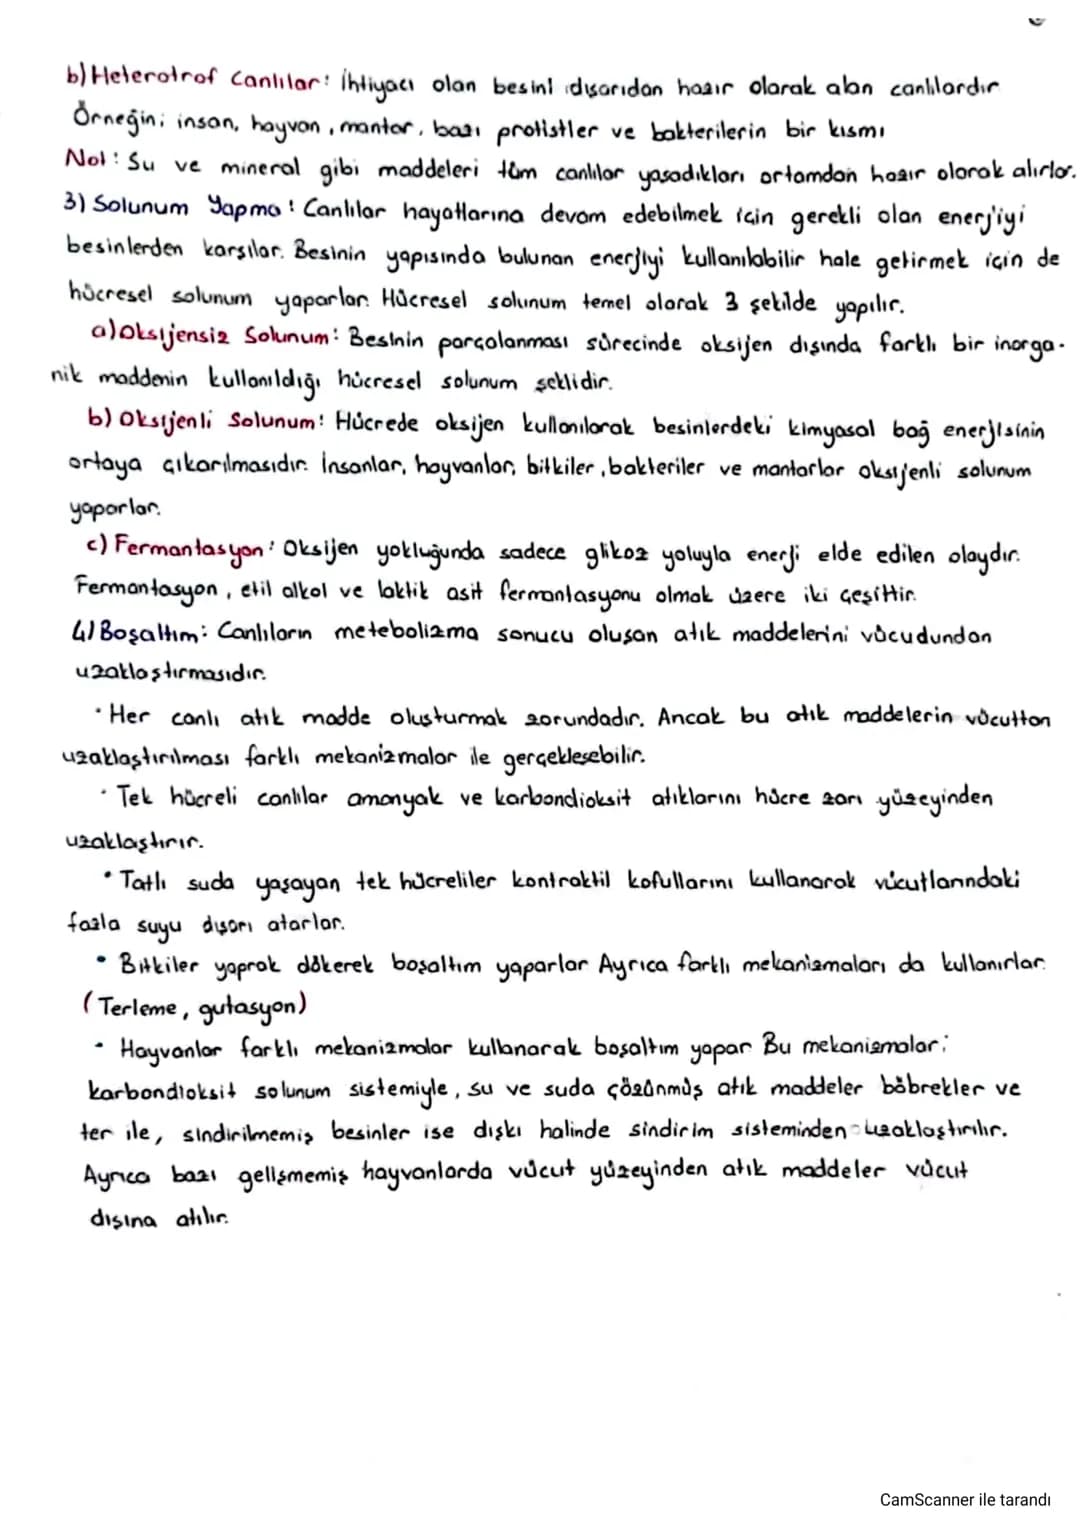 b) Heterotrof Canlılar: İhtiyacı olan besini dışarıdan hazır olarak alan canlılardır
Örneğin; insan, hayvan, mantar, bazı protistler ve bakterilerin bir kısmı
Not: Su ve mineral gibi maddeleri tüm canlılar yaşadıkları ortamdan hazır olarak alırlar.
3) Solunum Yapma: Canlılar hayatlarına devam edebilmek için gerekli olan enerjiyi
besinlerden karşılar. Besinin yapısında bulunan enerjiyi kullanılabilir hale getirmek için de
hücresel solunum yaparlar. Hücresel solunum temel olarak 3 şekilde yapılır.
a) Oksijensiz Solunum: Besinin parçalanması sürecinde oksijen dışında farklı bir inorga-
nik maddenin kullanıldığı hücresel solunum şeklidir.
b) Oksijenli Solunum: Hücrede oksijen kullanılarak besinlerdeki kimyasal bağ enerjisinin
ortaya çıkarılmasıdır. İnsanlar, hayvanlar, bitkiler, bakteriler ve mantarlar oksijenli solunum
yaparlar.
c) Fermantasyon: Oksijen yokluğunda sadece glikoz yoluyla enerji elde edilen olaydır.
Fermantasyon, etil alkol ve laktik asit fermantasyonu olmak üzere iki çeşittir.
4) Boşaltım: Canlıların metebolizma sonucu oluşan atık maddelerini vücudundan
uzaklaştırmasıdır.
• Her canlı atık madde oluşturmak zorundadır. Ancak bu atık maddelerin vücuttan
uzaklaştırılması farklı mekanizmalar ile gerçekleşebilir.
• Tek hücreli canlılar amonyak ve karbondioksit atıklarını hücre zarı yüzeyinden
uzaklaştırır.
• Tatlı suda yaşayan tek hücreliler kontraktil kofullarını kullanarak vücutlarındaki
fazla suyu dışarı atarlar.
• Bitkiler yaprak dökerek boşaltım yaparlar Ayrıca farklı mekanizmaları da kullanırlar.
(Terleme, gutasyon)
• Hayvanlar farklı mekanizmalar kullanarak boşaltım yapar Bu mekanizmalar;
karbondioksit solunum sistemiyle, su ve suda çözünmüş atık maddeler böbrekler ve
ter ile, sindirilmemiş besinler ise dışkı halinde sindirim sisteminden uzaklaştırılır.
Ayrıca bazı gelişmemiş hayvanlarda vücut yüzeyinden atık maddeler vücut
dışına atılır.
CamScanner ile tarandı